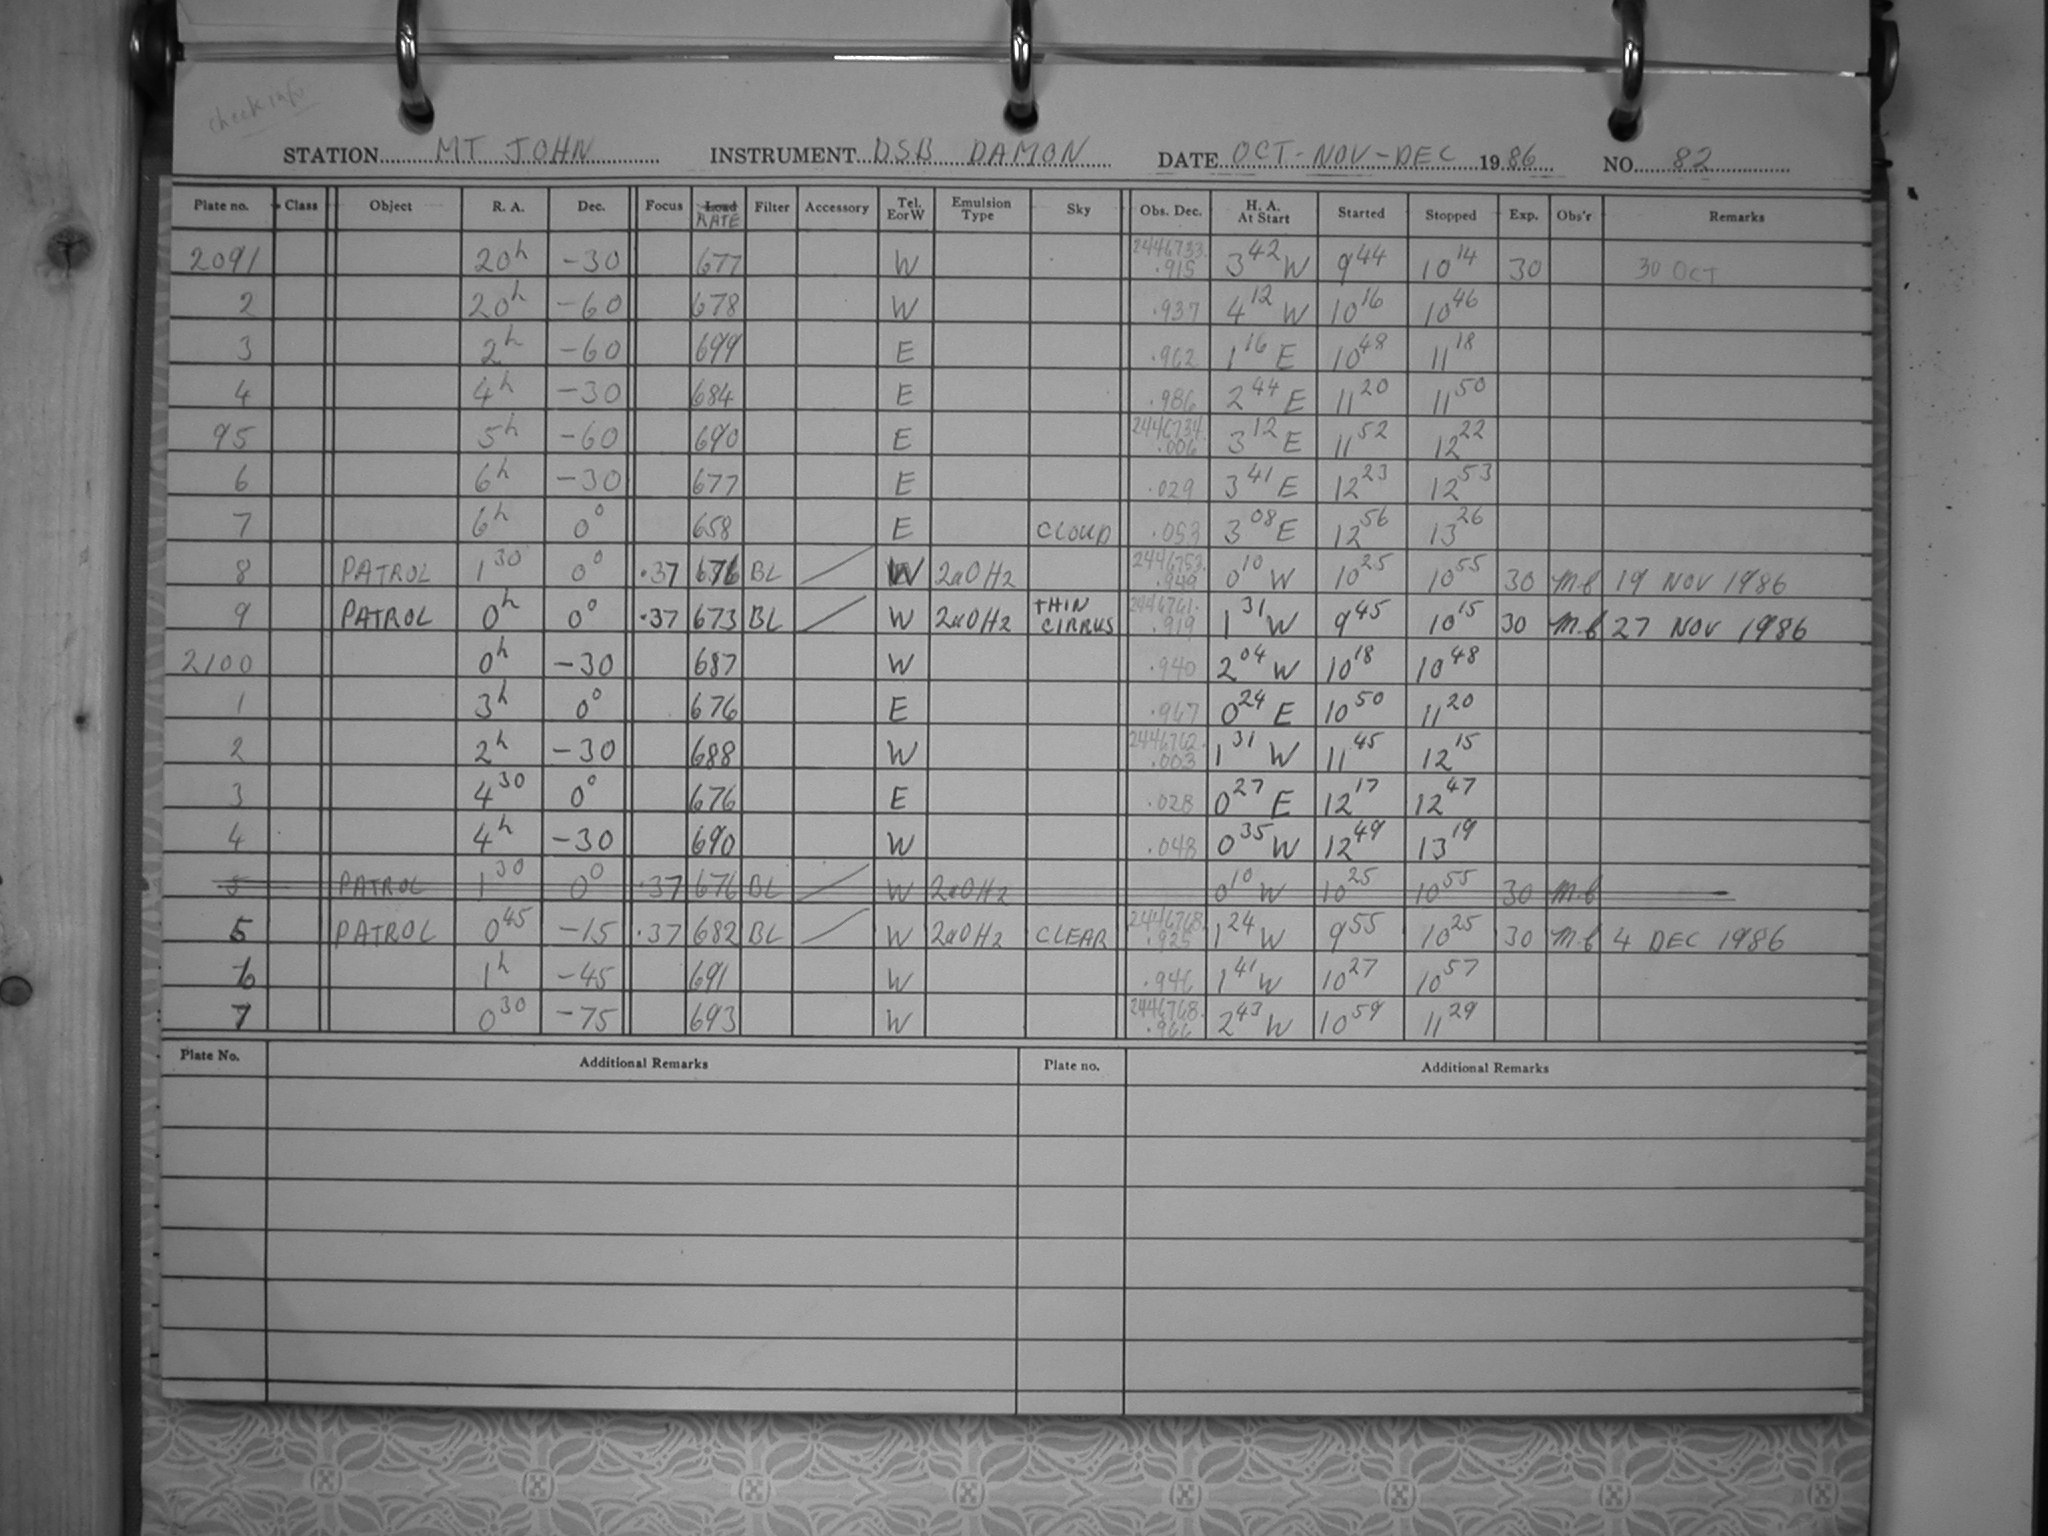 check info
STATION MT JOHN INSTRUMENT DSB DAMON DATE OCT-NOV-DEC 1986 NO. 82
Plate no. Class Object R. A. Dec. Focus Load RATE Filter Accessory Tel. E or W Emulsion Type Sky Obs. Dec. H. A. At Start Started Stopped Exp. Obs'r Remarks
2091 20h -30 677 W 2446733.915 3 42 W 9 44 10 14 30 30 OCT
2 20h -60 678 W .937 4 12 W 10 16 10 46
3 2h -60 699 E .962 1 16 E 10 48 11 18
4 4h -30 684 E .986 2 44 E 11 20 11 50
95 5h -60 690 E 2446734.006 3 12 E 11 52 12 22
6 6h -30 677 E .029 3 41 E 12 23 12 53
7 6h 0° 658 E CLOUD .053 3 08 E 12 56 13 26
8 PATROL 1 30 0° .37 676 BL W 2aOHz 2446753.949 0 10 W 10 25 10 55 30 M.B 19 NOV 1986
9 PATROL 0h 0° .37 673 BL W 2aOHz THIN CIRRUS 2446761.919 1 31 W 9 45 10 15 30 M.B 27 NOV 1986
2100 0h -30 687 W .940 2 04 W 10 18 10 48
1 3h 0° 676 E .967 0 24 E 10 50 11 20
2 2h -30 688 W 2446762.003 1 31 W 11 45 12 15
3 4 30 0° 676 E .028 0 27 E 12 17 12 47
4 4h -30 690 W .048 0 35 W 12 49 13 19
5 PATROL 1 30 0° .37 676 BL W 2aOHz 0 10 W 10 25 10 55 30 M.B
5 PATROL 0 45 -15 .37 682 BL W 2aOHz CLEAR 2446768.925 1 24 W 9 55 10 25 30 M.B 4 DEC 1986
6 1h -45 691 W .946 1 41 W 10 27 10 57
7 0 30 -75 693 W 2446768.966 2 43 W 10 59 11 29
Plate No. Additional Remarks Plate no. Additional Remarks